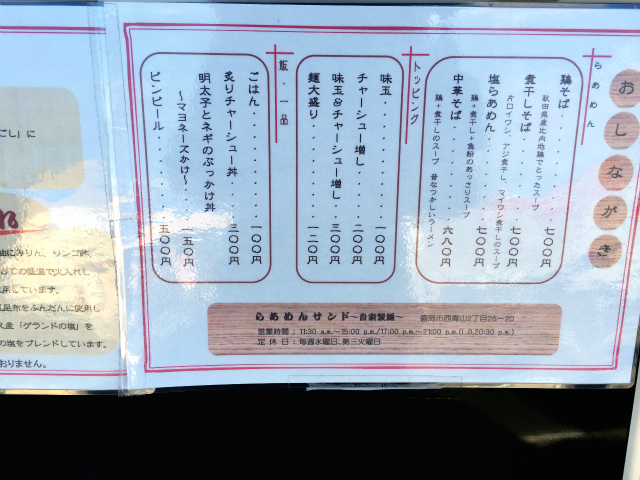 おしながき
らぁめん
鶏そば 七〇〇円
秋田県産比内地鶏でとったスープ
煮干しそば 七〇〇円
片口イワシ、アジ煮干し、マイワシ煮干しのスープ
塩らぁめん 七〇〇円
鶏+煮干し+魚粉のあっさりスープ
中華そば 六八〇円
鶏+煮干しのスープ 昔なつかしいラーメン
トッピング
味玉 一〇〇円
チャーシュー増し 二〇〇円
味玉&チャーシュー増し 三〇〇円
麺大盛り 一二〇円
飯・一品
ごはん 一〇〇円
炙りチャーシュー丼 三〇〇円
明太子とネギのぶっかけ丼
〜マヨネーズかけ〜 一五〇円
ビンビール 五〇〇円
らぁめんサンド〜自家製麺〜 盛岡市西青山2丁目26-20
営業時間:11:30 a.m.〜15:00 p.m./17:00 p.m.〜21:00 p.m.(L.O.20:30 p.m.)
定休日:毎週水曜日、第三火曜日
ごし」に
油にみりん、リンゴ酢
しての低温で火入れし
用しています。
昆布をふんだんに使用し
産「ゲランドの塩」を
の塩をブレンドしています。
おりません。